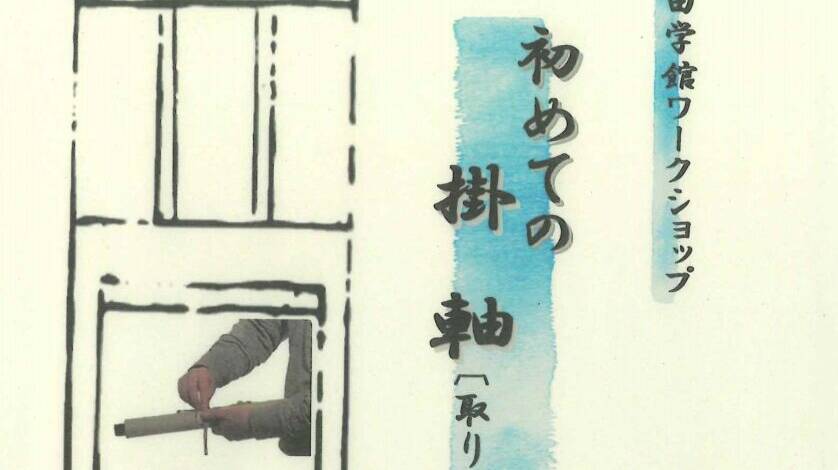 学館ワークショップ
初めての
掛軸
〔取り